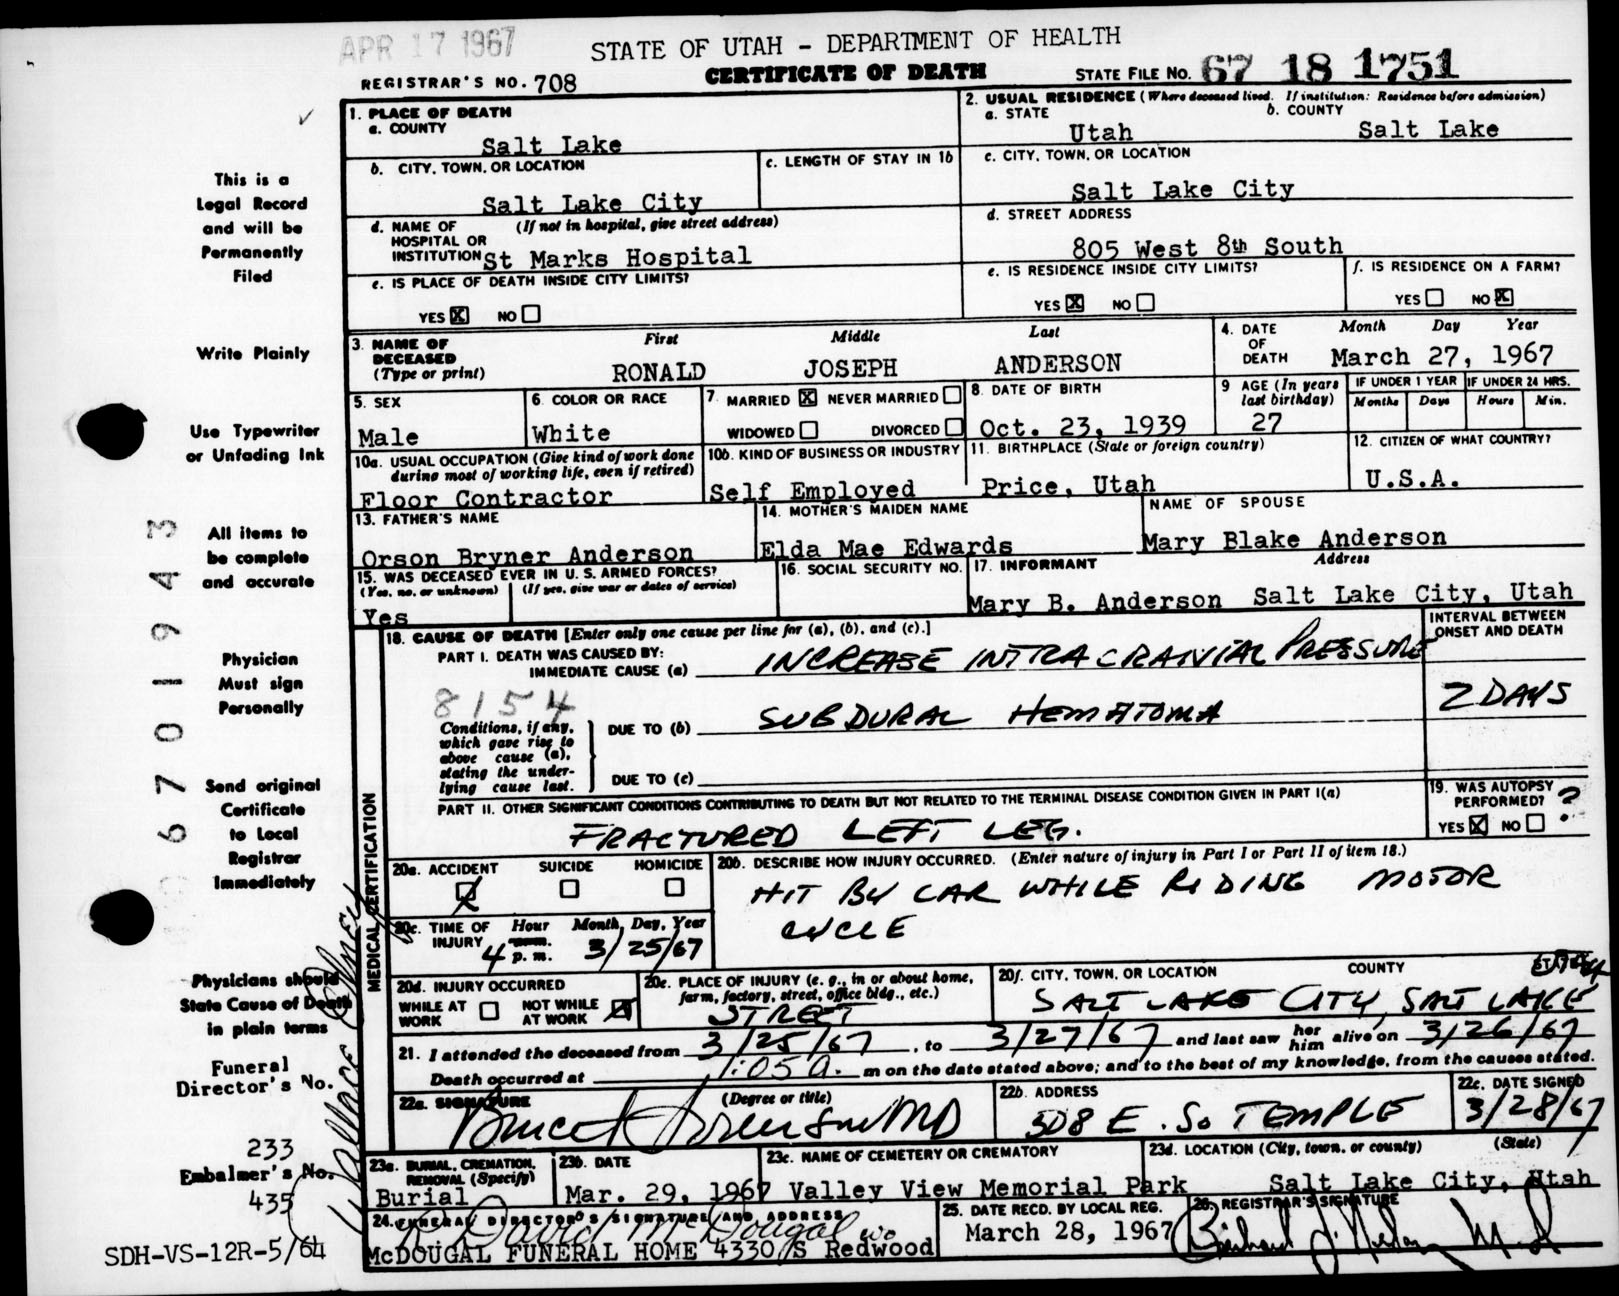 APR 17 1967
STATE OF UTAH - DEPARTMENT OF HEALTH
REGISTRAR'S NO. 708
CERTIFICATE OF DEATH
STATE FILE NO. 67 18 1751
This is a
Legal Record
and will be
Permanently
Filed
Write Plainly
Use Typewriter
or Unfading Ink
All items to
be complete
and accurate
Physician
Must sign
Personally
Send original
Certificate
to Local
Registrar
Immediately
Physicians should
State Cause of Death
in plain terms
Funeral
Director's No.
233
Embalmer's No.
435
SDH-VS-12R-5/64
6701943
1. PLACE OF DEATH
a. COUNTY
Salt Lake
b. CITY, TOWN, OR LOCATION
Salt Lake City
c. LENGTH OF STAY IN 1b
d. NAME OF (If not in hospital, give street address)
HOSPITAL OR
INSTITUTION St Marks Hospital
e. IS PLACE OF DEATH INSIDE CITY LIMITS?
YES X NO
2. USUAL RESIDENCE (Where deceased lived. If institution: Residence before admission)
a. STATE b. COUNTY
Utah Salt Lake
c. CITY, TOWN, OR LOCATION
Salt Lake City
d. STREET ADDRESS
805 West 8th South
e. IS RESIDENCE INSIDE CITY LIMITS?
YES X NO
f. IS RESIDENCE ON A FARM?
YES NO X
3. NAME OF DECEASED (Type or print)
First Middle Last
RONALD JOSEPH ANDERSON
4. DATE OF DEATH Month Day Year
March 27, 1967
5. SEX
Male
6. COLOR OR RACE
White
7. MARRIED X NEVER MARRIED
WIDOWED DIVORCED
8. DATE OF BIRTH
Oct. 23, 1939
9 AGE (In years last birthday)
27
IF UNDER 1 YEAR IF UNDER 24 HRS.
Months Days Hours Min.
10a. USUAL OCCUPATION (Give kind of work done
during most of working life, even if retired)
Floor Contractor
10b. KIND OF BUSINESS OR INDUSTRY
Self Employed
11. BIRTHPLACE (State or foreign country)
Price, Utah
12. CITIZEN OF WHAT COUNTRY?
U.S.A.
13. FATHER'S NAME
Orson Bryner Anderson
14. MOTHER'S MAIDEN NAME
Elda Mae Edwards
NAME OF SPOUSE
Mary Blake Anderson
15. WAS DECEASED EVER IN U. S. ARMED FORCES?
(Yes, no, or unknown) (If yes, give war or dates of service)
Yes
16. SOCIAL SECURITY NO.
17. INFORMANT Address
Mary B. Anderson Salt Lake City, Utah
MEDICAL CERTIFICATION
18. CAUSE OF DEATH [Enter only one cause per line for (a), (b), and (c).]
INTERVAL BETWEEN
ONSET AND DEATH
PART I. DEATH WAS CAUSED BY:
IMMEDIATE CAUSE (a) INCREASE INTRACRANIAL PRESSURE
8154
Conditions, if any,
which gave rise to
above cause (a),
stating the under-
lying cause last.
DUE TO (b) SUBDURAL HEMATOMA
2 DAYS
DUE TO (c)
PART II. OTHER SIGNIFICANT CONDITIONS CONTRIBUTING TO DEATH BUT NOT RELATED TO THE TERMINAL DISEASE CONDITION GIVEN IN PART I(a)
FRACTURED LEFT LEG.
19. WAS AUTOPSY
PERFORMED? ?
YES X NO
20a. ACCIDENT SUICIDE HOMICIDE
X
20b. DESCRIBE HOW INJURY OCCURRED. (Enter nature of injury in Part I or Part II of item 18.)
HIT BY CAR WHILE RIDING MOTOR
CYCLE
20c. TIME OF INJURY Hour Month, Day, Year
4 p. m. 3/25/67
20d. INJURY OCCURRED
WHILE AT WORK NOT WHILE AT WORK X
20e. PLACE OF INJURY (e. g., in or about home,
farm, factory, street, office bldg., etc.)
STREET
20f. CITY, TOWN, OR LOCATION COUNTY STATE
SALT LAKE CITY, SALT LAKE
21. I attended the deceased from 3/25/67, to 3/27/67 and last saw her him alive on 3/26/67
Death occurred at 1:05 a. m on the date stated above; and to the best of my knowledge, from the causes stated.
22a. SIGNATURE (Degree or title)
MD
22b. ADDRESS
508 E. So TEMPLE
22c. DATE SIGNED
3/28/67
23a. BURIAL, CREMATION,
REMOVAL (Specify)
Burial
23b. DATE
Mar. 29, 1967
23c. NAME OF CEMETERY OR CREMATORY
Valley View Memorial Park
23d. LOCATION (City, town, or county) (State)
Salt Lake City, Utah
24. FUNERAL DIRECTOR'S SIGNATURE AND ADDRESS
R David McDougal
McDOUGAL FUNERAL HOME 4330 S Redwood
25. DATE RECD. BY LOCAL REG.
March 28, 1967
26. REGISTRAR'S SIGNATURE